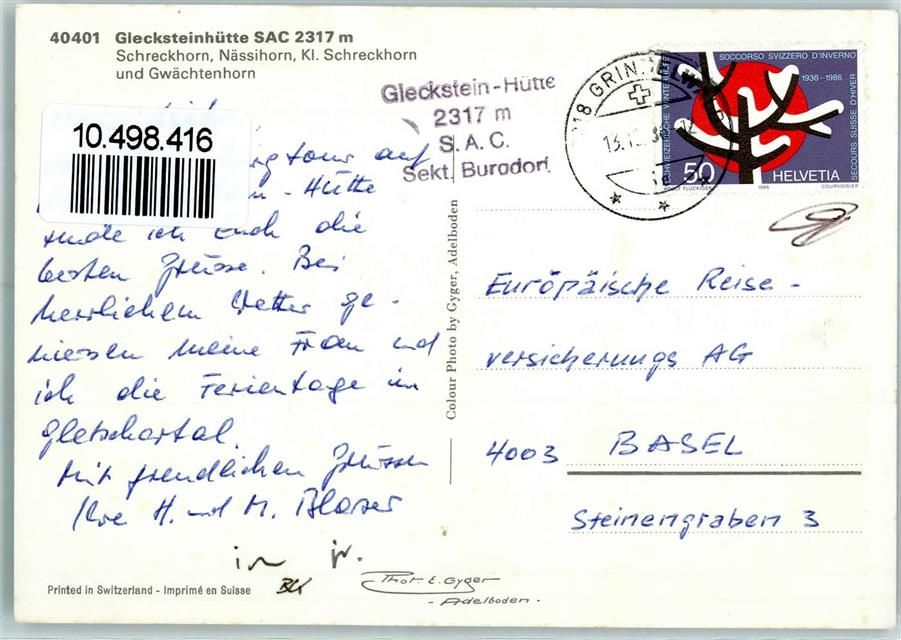 40401 Glecksteinhütte SAC 2317 m
Schreckhorn, Nässihorn, Kl. Schreckhorn
und Gwächtenhorn
10.498.416
auf
- Hütte
ich Euch die
besten Grüsse. Bei
herrlichem Wetter ge-
niessen meine Frau und
ich die Ferientage im
Gletschertal.
Mit freundlichen Grüssen
Ihre H. und M. Blaser
Printed in Switzerland - Imprimé en Suisse
Gleckstein-Hütte
2317 m
S.A.C.
Sekt. Burgdorf
Colour Photo by Gyger, Adelboden
SOCCORSO SVIZZERO D'INVERNO
1936-1986
SCHWEIZERISCHE WINTERHILFE
SECOURS SUISSE D'HIVER
50 HELVETIA
ADOLF FLÜCKIGER 1986 COURVOISIER
Europäische Reise-
versicherungs AG
4003 BASEL
Steinengraben 3
Phot. E. Gyger
- Adelboden -